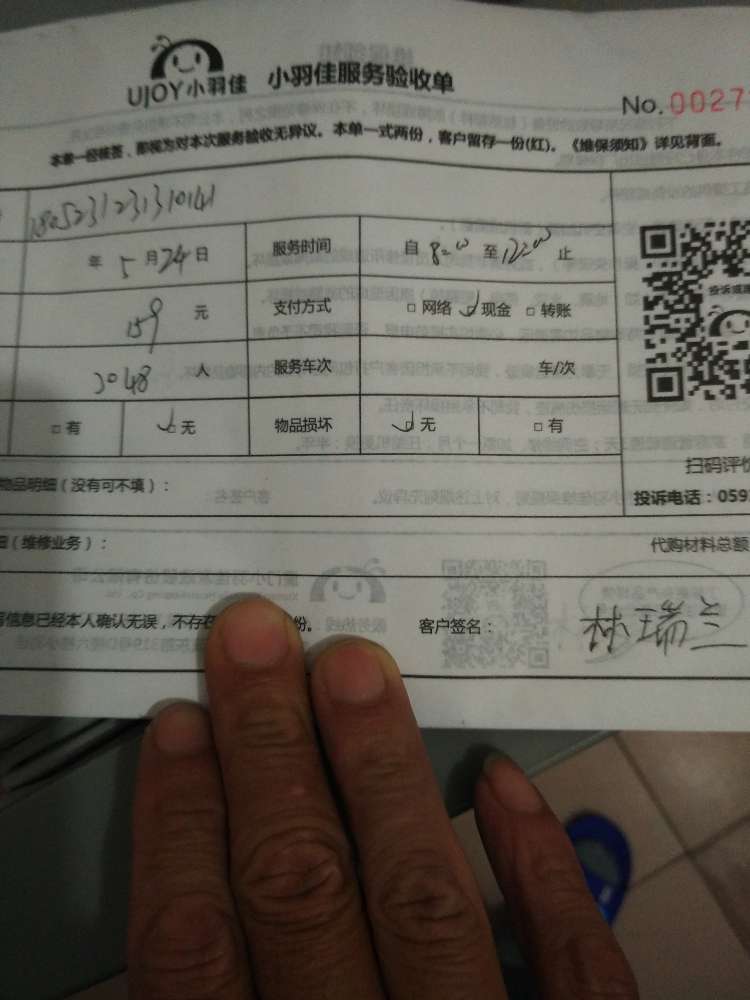 UJOY小羽佳 小羽佳服务验收单
No. 0027
本单一经核签，即视为对本次服务验收无异议。本单一式两份，客户留存一份(红)。《维保须知》详见背面。
1805231231310141
年 5 月 24 日 服务时间 自 8=00 至 12=00 止
159 元 支付方式 □ 网络 ☑ 现金 □ 转账
2048 人 服务车次 车/次
□ 有 ☑ 无 物品损坏 ☑ 无 □ 有
物品明细（没有可不填）：
扫码评价
投诉电话：059
（维修业务）：
代购材料总额
信息已经本人确认无误，不存在 份。 客户签名： 林瑞兰